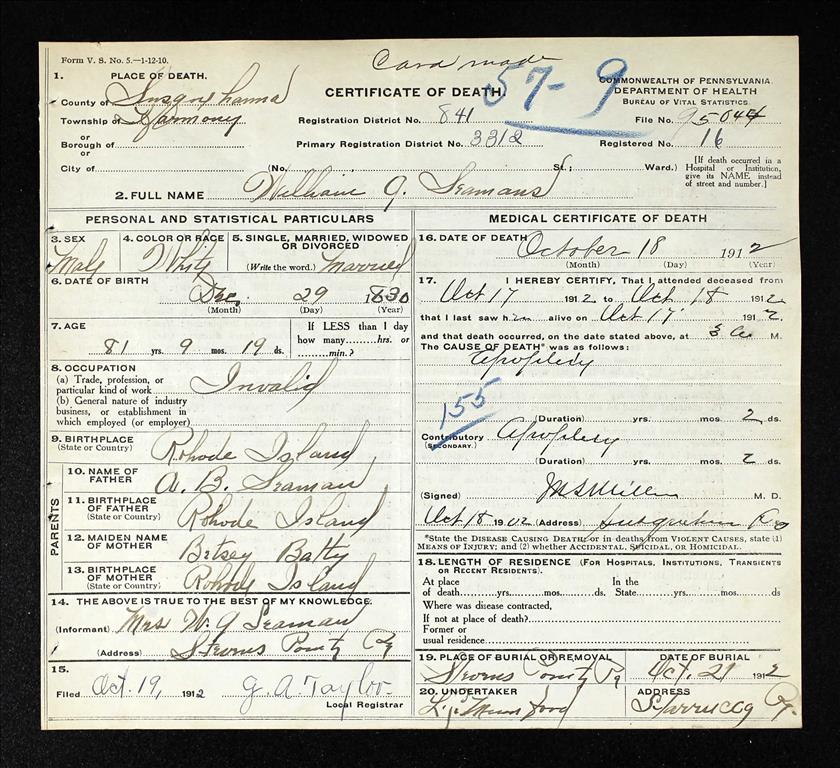 Form V. S. No. 5.—1-12-10.
Card made
57-9
1. PLACE OF DEATH.
CERTIFICATE OF DEATH
COMMONWEALTH OF PENNSYLVANIA
DEPARTMENT OF HEALTH
BUREAU OF VITAL STATISTICS
County of Susquehanna
Township of Harmony
or
Borough of
or
City of
Registration District No. 841
File No. 95044
Primary Registration District No. 3312
Registered No. 16
(No. St; Ward.)
[If death occurred in a Hospital or Institution, give its NAME instead of street and number.]
2. FULL NAME William G. Seamans
PERSONAL AND STATISTICAL PARTICULARS
3. SEX Male
4. COLOR OR RACE White
5. SINGLE, MARRIED, WIDOWED OR DIVORCED
(Write the word.) Married
6. DATE OF BIRTH
Dec. 29 1830
(Month) (Day) (Year)
7. AGE
81 yrs. 9 mos. 19 ds.
If LESS than 1 day
how many hrs. or
min.?
8. OCCUPATION
(a) Trade, profession, or particular kind of work Invalid
(b) General nature of industry business, or establishment in which employed (or employer)
9. BIRTHPLACE
(State or Country) Rhode Island
PARENTS
10. NAME OF FATHER A. B. Seaman
11. BIRTHPLACE OF FATHER
(State or Country) Rhode Island
12. MAIDEN NAME OF MOTHER Betsey Batty
13. BIRTHPLACE OF MOTHER
(State or Country) Rhode Island
14. THE ABOVE IS TRUE TO THE BEST OF MY KNOWLEDGE.
(Informant) Mrs W. G Seaman
(Address) Stevens Point Pa
15.
Filed Oct 19, 1912 G. A. Taylor
Local Registrar
MEDICAL CERTIFICATE OF DEATH
16. DATE OF DEATH
October 18 1912
(Month) (Day) (Year)
17. I HEREBY CERTIFY, That I attended deceased from
Oct 17 1912 to Oct 18 1912
that I last saw him alive on Oct 17 1912
and that death occurred, on the date stated above, at 3 a M.
The CAUSE OF DEATH* was as follows:
Apoplexy
155
(Duration) yrs. mos. 2 ds.
Contributory Apoplexy
(SECONDARY.)
(Duration) yrs. mos. 2 ds.
(Signed) Miller M. D.
Oct 18 1902 (Address) Pa
*State the DISEASE CAUSING DEATH; or in deaths from VIOLENT CAUSES, state (1) MEANS OF INJURY; and (2) whether ACCIDENTAL, SUICIDAL, OR HOMICIDAL.
18. LENGTH OF RESIDENCE (FOR HOSPITALS, INSTITUTIONS, TRANSIENTS OR RECENT RESIDENTS).
At place of death yrs. mos. ds. In the State yrs. mos. ds.
Where was disease contracted,
If not at place of death?
Former or
usual residence
19. PLACE OF BURIAL OR REMOVAL
Stevens Point Pa
DATE OF BURIAL
Oct. 21 1912
20. UNDERTAKER
ADDRESS
Starrucca Pa.